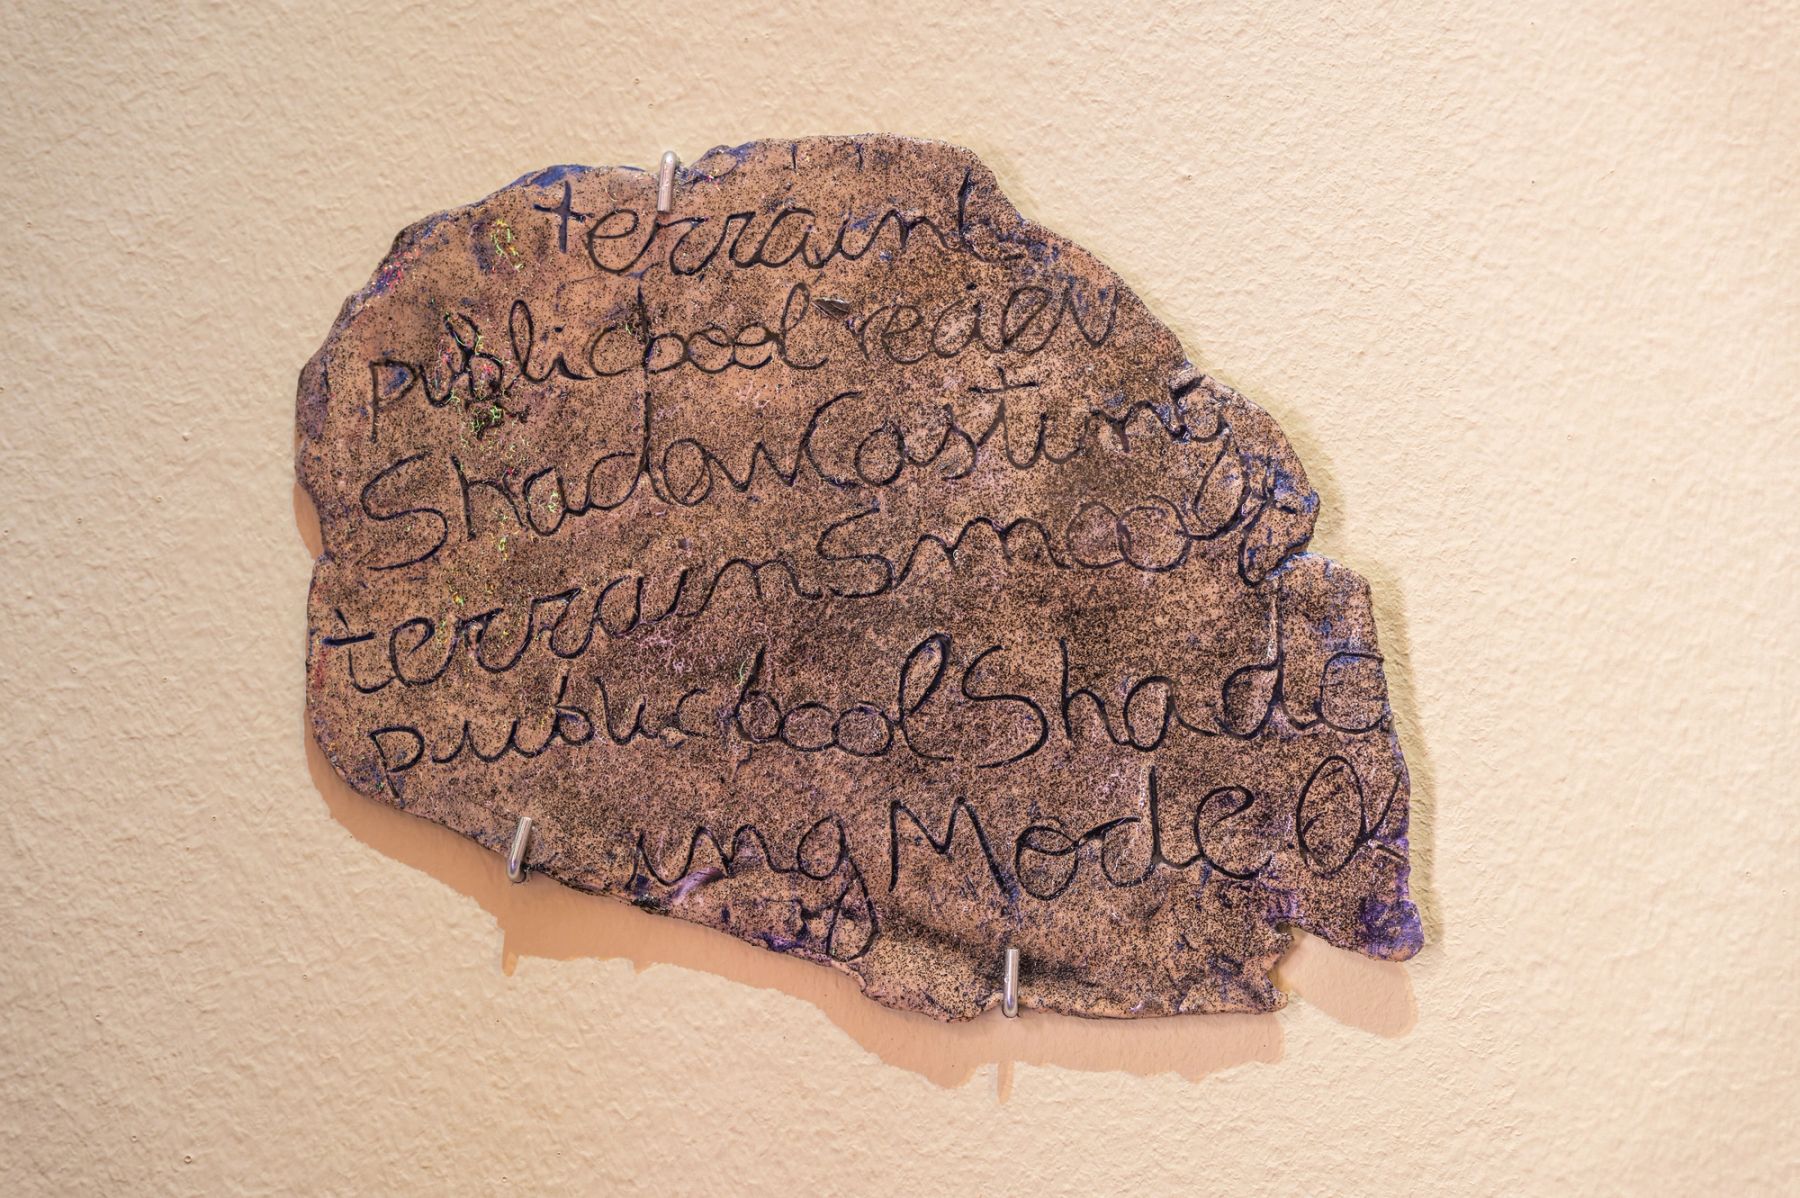 terrain
publicbool
ShadowCasting
terrainSmoo
publicboolShade
ingMode